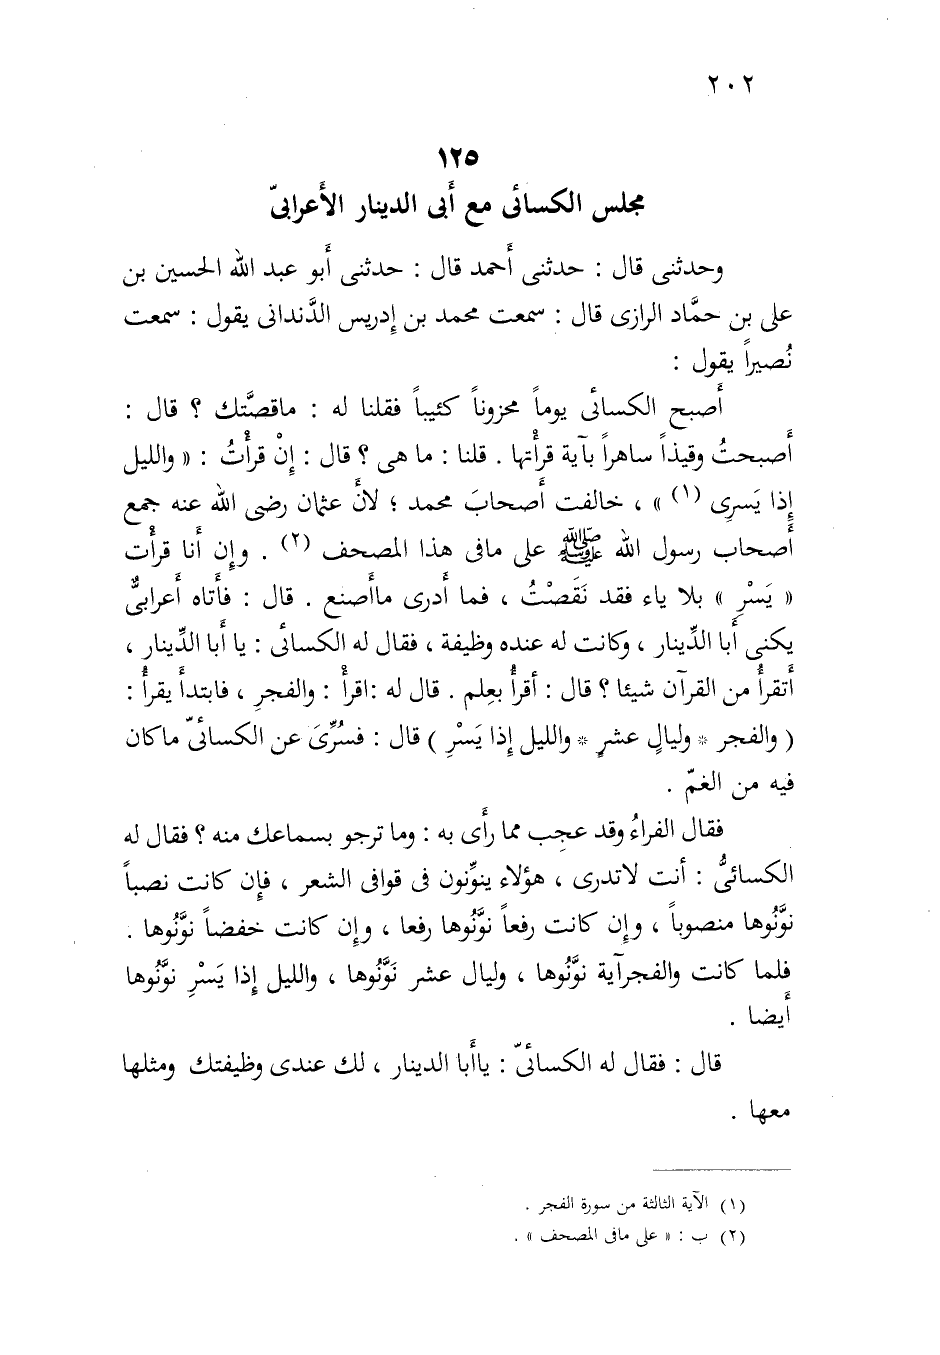 ٢٠٢
١٢٥
مجلس الكسائى مع أبى الدينار الأعرابىّ
وحدثنى قال : حدثنى أحمد قال : حدثنى أبو عبد الله الحسين بن
على بن حمَّاد الرازى قال : سمعت محمد بن إدريس الدَّندانى يقول : سمعت
نُصيراً يقول :
أصبح الكسائى يوماً محزوناً كئيباً فقلنا له : ماقصَّتك ؟ قال :
أصبحتُ وقيذاً ساهراً بآية قرأتها . قلنا : ما هى ؟ قال : إنْ قرأْتُ : « والليل
إذا يَسرِى (١) » ، خالفت أصحابَ محمد ؛ لأنَّ عثمان رضى الله عنه جمع
أصحاب رسول الله ﷺ على مافى هذا المصحف (٢) . وإن أنا قرأْت
« يَسْرِ » بلا ياء فقد نَقَصْتُ ، فما أدرى ماأصنع . قال : فأتاه أعرابىٌّ
يكنى أبا الدِّينار ، وكانت له عنده وظيفة ، فقال له الكسائى : يا أبا الدِّينار ،
أتقرأُ من القرآن شيئا ؟ قال : أقرأُ بعِلم . قال له :اقرأْ : والفجرِ ، فابتدأ يقرأُ :
( والفجر * وليالٍ عشرٍ * والليل إذا يَسْرِ ) قال : فسُرِّىَ عن الكسائىّ ماكان
فيه من الغمّ .
فقال الفراءُ وقد عجِب مما رأَى به : وما ترجو بسماعك منه ؟ فقال له
الكسائىُّ : أنت لاتدرى ، هؤلاء ينوِّنون فى قوافى الشعر ، فإن كانت نصباً
نوَّنُوها منصوباً ، وإن كانت رفعاً نوَّنُوها رفعا ، وإن كانت خفضاً نوَّنُوها .
فلما كانت والفجرآية نوَّنُوها ، وليال عشر نَوَّنُوها ، والليل إذا يَسْرِ نوَّنُوها
أيضا .
قال : فقال له الكسائىّ : ياأبا الدينار ، لك عندى وظيفتك ومثلها
معها .
(١) الآية الثالثة من سورة الفجر .
(٢) ب : « على مافى المصحف » .